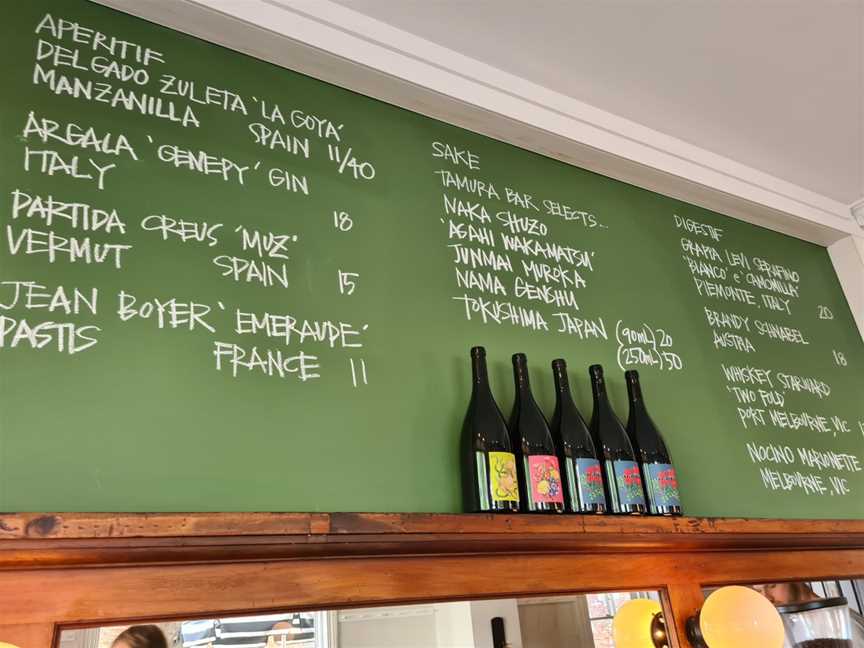 APERITIF
DELGADO ZULETA 'LA GOYA'
MANZANILLA SPAIN 11/40
ARGALA 'GENEPY' GIN
ITALY 18
PARTIDA CREUS 'MUZ'
VERMUT SPAIN 15
JEAN BOYER 'EMERAUDE'
PASTIS FRANCE 11
SAKE
TAMURA BAR SELECTS...
NAKA SHUZO
'ASAHI WAKAMATSU'
JUNMAI MUROKA
NAMA GENSHU
TOKUSHIMA JAPAN (90ML) 20
(250ML) 50
DIGESTIF
GRAPPA LEVI SERAFINO
'BIANCO' e 'CAMOMILLA'
PIEMONTE, ITALY 20
BRANDY SCHNABEL
AUSTRIA 18
WHISKEY STARWARD
'TWO FOLD'
PORT MELBOURNE, VIC
NOCINO MARIONETTE
MELBOURNE, VIC